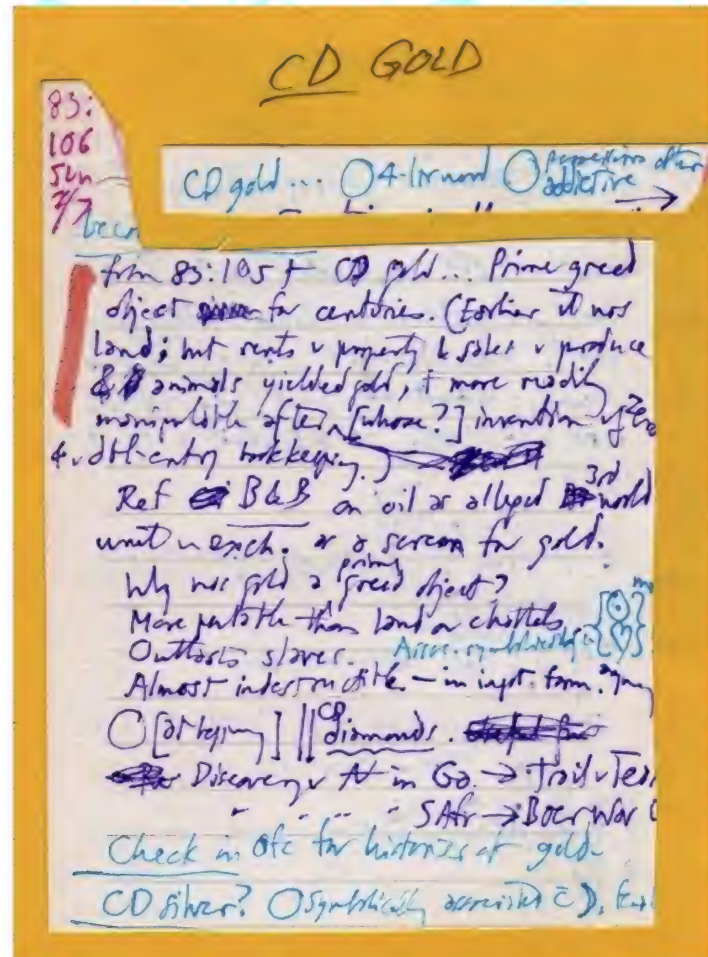 CD GOLD
83:
106
Sun
7/7
CD gold... 4-lr word often
addictive
from 83:105 + CD gold... Prime greed
object for centuries. (Earlier it was
land; but rents v property & sales v produce
& animals yielded gold, + more readily
after [whose?] invention
dbl-entry bookkeeping.)
Ref B&B on oil as alleged 3rd world
unit exch. as a screen for gold.
Why was gold a prime greed object?
More portable than land or chattels.
Outlasts slaves. Assoc. symbolically
Almost indestructible — in ingot form.
[at beginning] || CD diamonds.
Discovery v in Ga → Trail v Tea
" " " " SAfr → Boer War
Check in ofc for histories of gold.
CD silver? Symbolically associated